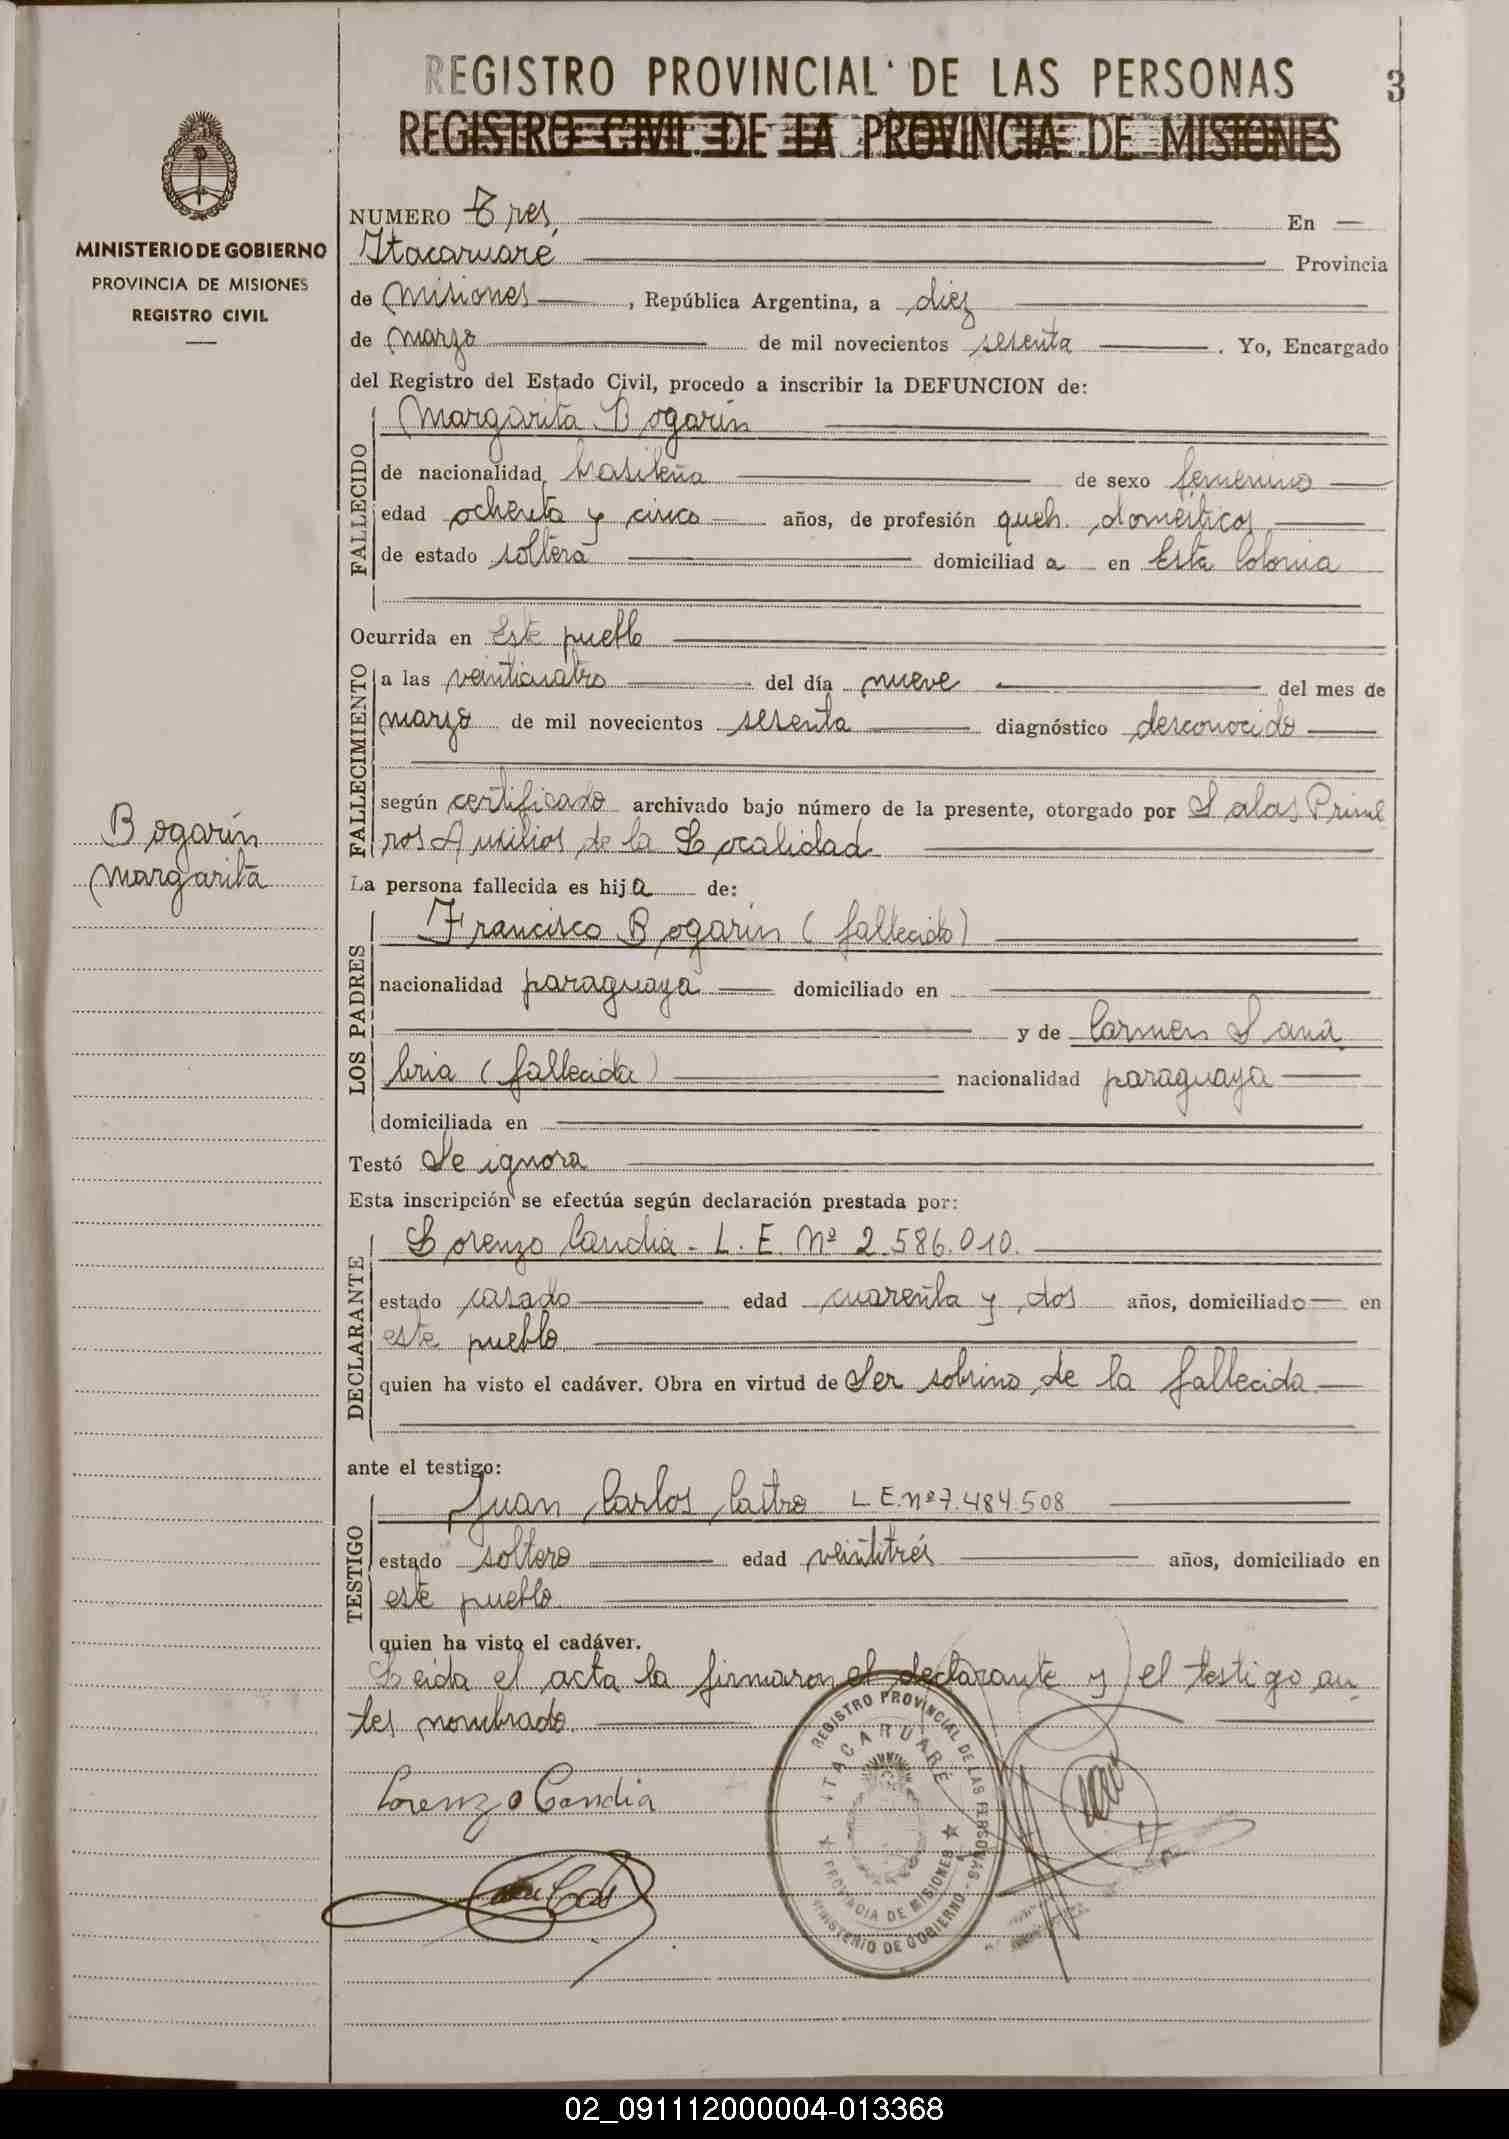 REGISTRO PROVINCIAL DE LAS PERSONAS
3
REGISTRO CIVIL DE LA PROVINCIA DE MISIONES
MINISTERIO DE GOBIERNO
PROVINCIA DE MISIONES
REGISTRO CIVIL
NUMERO Tres, En
Itacaruaré Provincia
de Misiones, República Argentina, a diez
de marzo de mil novecientos sesenta. Yo, Encargado
del Registro del Estado Civil, procedo a inscribir la DEFUNCION de:
FALLECIDO
Margarita Bogarin
de nacionalidad brasileña de sexo femenino
edad ochenta y cinco años, de profesión queh. domésticos
de estado soltera domiciliada en Esta Colonia
Ocurrida en Este pueblo
FALLECIMIENTO
a las veinticuatro del día nueve del mes de
marzo de mil novecientos sesenta diagnóstico desconocido
según certificado archivado bajo número de la presente, otorgado por Salas Prime
ros Auxilios de la Localidad
Bogarín
Margarita
La persona fallecida es hija de:
LOS PADRES
Francisco Bogarin (fallecido)
nacionalidad paraguaya domiciliado en
y de Carmen Sana
bria (fallecida) nacionalidad paraguaya
domiciliada en
Testó Se ignora
Esta inscripción se efectúa según declaración prestada por:
DECLARANTE
Lorenzo Candia - L. E. Nº 2.586.010.
estado casado edad cuarenta y dos años, domiciliado en
este pueblo
quien ha visto el cadáver. Obra en virtud de Ser sobrino de la fallecida
ante el testigo:
TESTIGO
Juan Carlos Castro L.E. nº 7.484.508
estado soltero edad veintitrés años, domiciliado en
este pueblo
quien ha visto el cadáver.
Leida el acta la firmaron el declarante y el testigo an
tes nombrado.
Lorenzo Candia
REGISTRO PROVINCIAL DE LAS PERSONAS
ITACARUARÉ
PROVINCIA DE MISIONES
MINISTERIO DE GOBIERNO
02_091112000004-013368